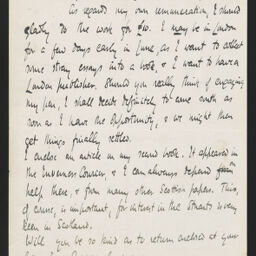 As regards my own remuneration I should
gladly do the work for £10. I may be in London
for a few days early in June as I want to collect
some stray essays into a book & I want to have a
London publisher. Should you really think of engaging
my pen, I shall decide definitely to come south as
soon as I have the opportunity, & we might then
get things finally settled.
I enclose an article on my second book. It appeared in
the Inverness Courier, & I can always depend from
help there, & from many other Scottish papers. This,
of course, is important, for interest in the Stuarts is very
keen in Scotland.
Will you be so kind as to return enclosed at your